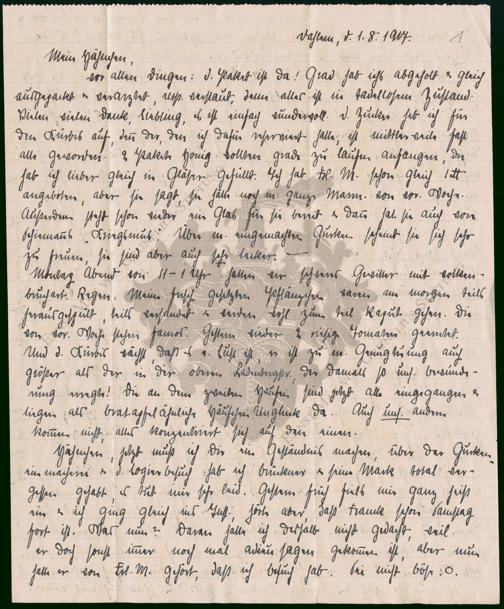 Dahlem, d. 1.8.1947. 1
Mein Häschen,
vor allen Dingen: d. Paket ist da! Grad hab ich's abgeholt & gleich
ausgepackt & verarztet, resp. verstaut, denn alles ist in tadellosem Zustand.
Vielen vielen Dank, Liebling, es ist einfach wundervoll. d. Zucker hab ich für
den Kürbis auf, denn der, den ich dafür reserviert hatte, ist mittlerweile fast
alle geworden. 2 Pakete Honig wollten grade zu laufen anfangen, die
hab ich lieber gleich in Gläser gefüllt. Ich hab Frl. M. schon gleich 1
angeboten, aber sie sagt, sie hätte noch'n ganz von vor. Woche.
steht schon wieder ein Glas für sie bereit & dann hat sie auch von
Über m. eingemachten Gurken scheint sie sich sehr
zu freuen, sie sind aber auch sehr lecker. —
Montag Abend von 11-1 Uhr hatten wir schweres Gewitter mit wolken-
bruchart. Regen. Meine frisch gesetzten Pflänzchen waren am morgen teils
herausgespült, teils versandet & werden wohl zum Teil kaputt gehen. Die
von vor. Woche stehen famos. Gestern wieder 2 riesige Tomaten geerntet.
Und d. Kürbis wächst, dass es e. Lust ist, er ist zu m. Genugtuung auch
größer als der in der oberen der damals so uns. Bewunde-
rung erregte! Die an dem zweiten Haufen sind jetzt alle eingegangen &
liegen als bratapfelähnliche Häufchen Unglück da. Auch uns. andern
kommen nicht alles konzentriert sich auf den einen.
Häschen, jetzt muß ich Dir ein Geständnis machen, über der Gurken-
einmacherei & d. Logierbesuch hab ich Brückner & seine Mark total ver-
gessen gehabt, es tut mir sehr leid. Gestern früh fiels mir ganz heiss
ein & ich ging gleich ins Inst., hörte aber dass Franck schon Samstag
fort ist. Was nun? Daran hatte ich deshalb nicht gedacht, weil
er doch sonst immer noch mal adieu sagen gekommen ist, aber nun
hatte er von Frl. M. gehört, dass ich Besuch hab. Sei nicht böse :O.